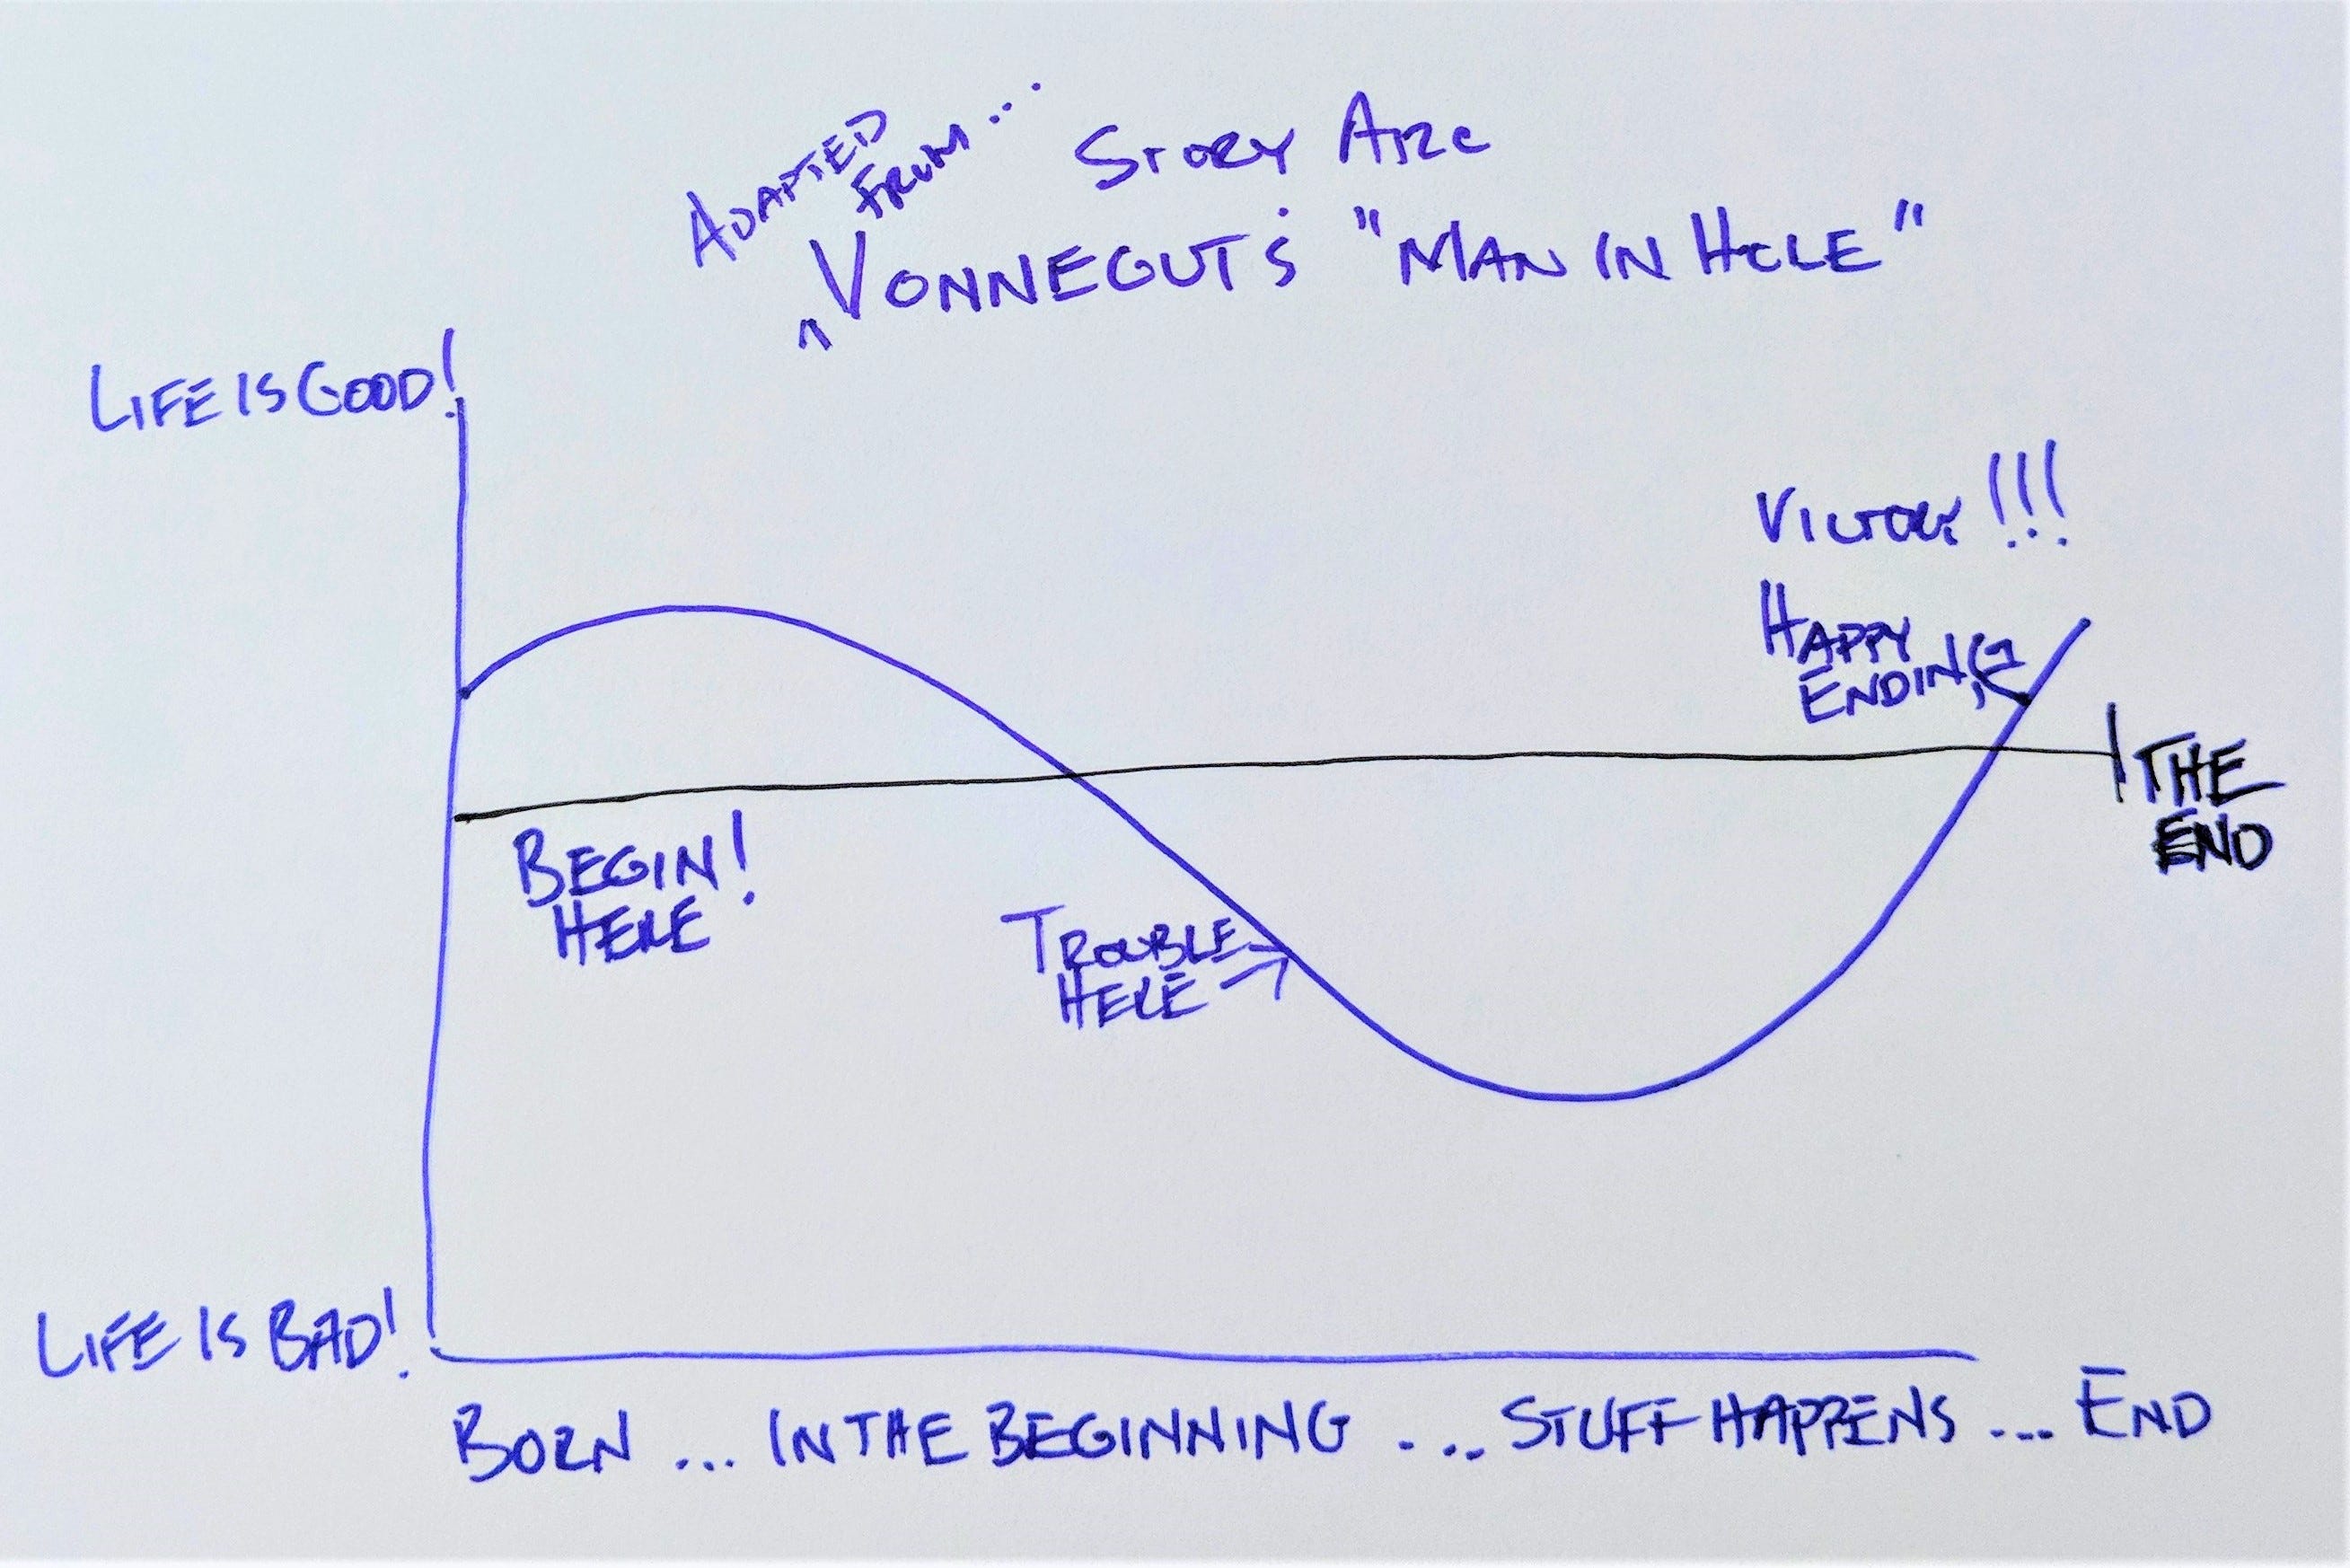 ADAPTED
FROM...
STORY ARC
"VONNEGUT'S "MAN IN HOLE"
LIFE IS GOOD!
VICTORY!!!
HAPPY
ENDING
THE
END
BEGIN!
HERE
TROUBLE
HERE
LIFE IS BAD!
BORN ... IN THE BEGINNING .... STUFF HAPPENS ... END